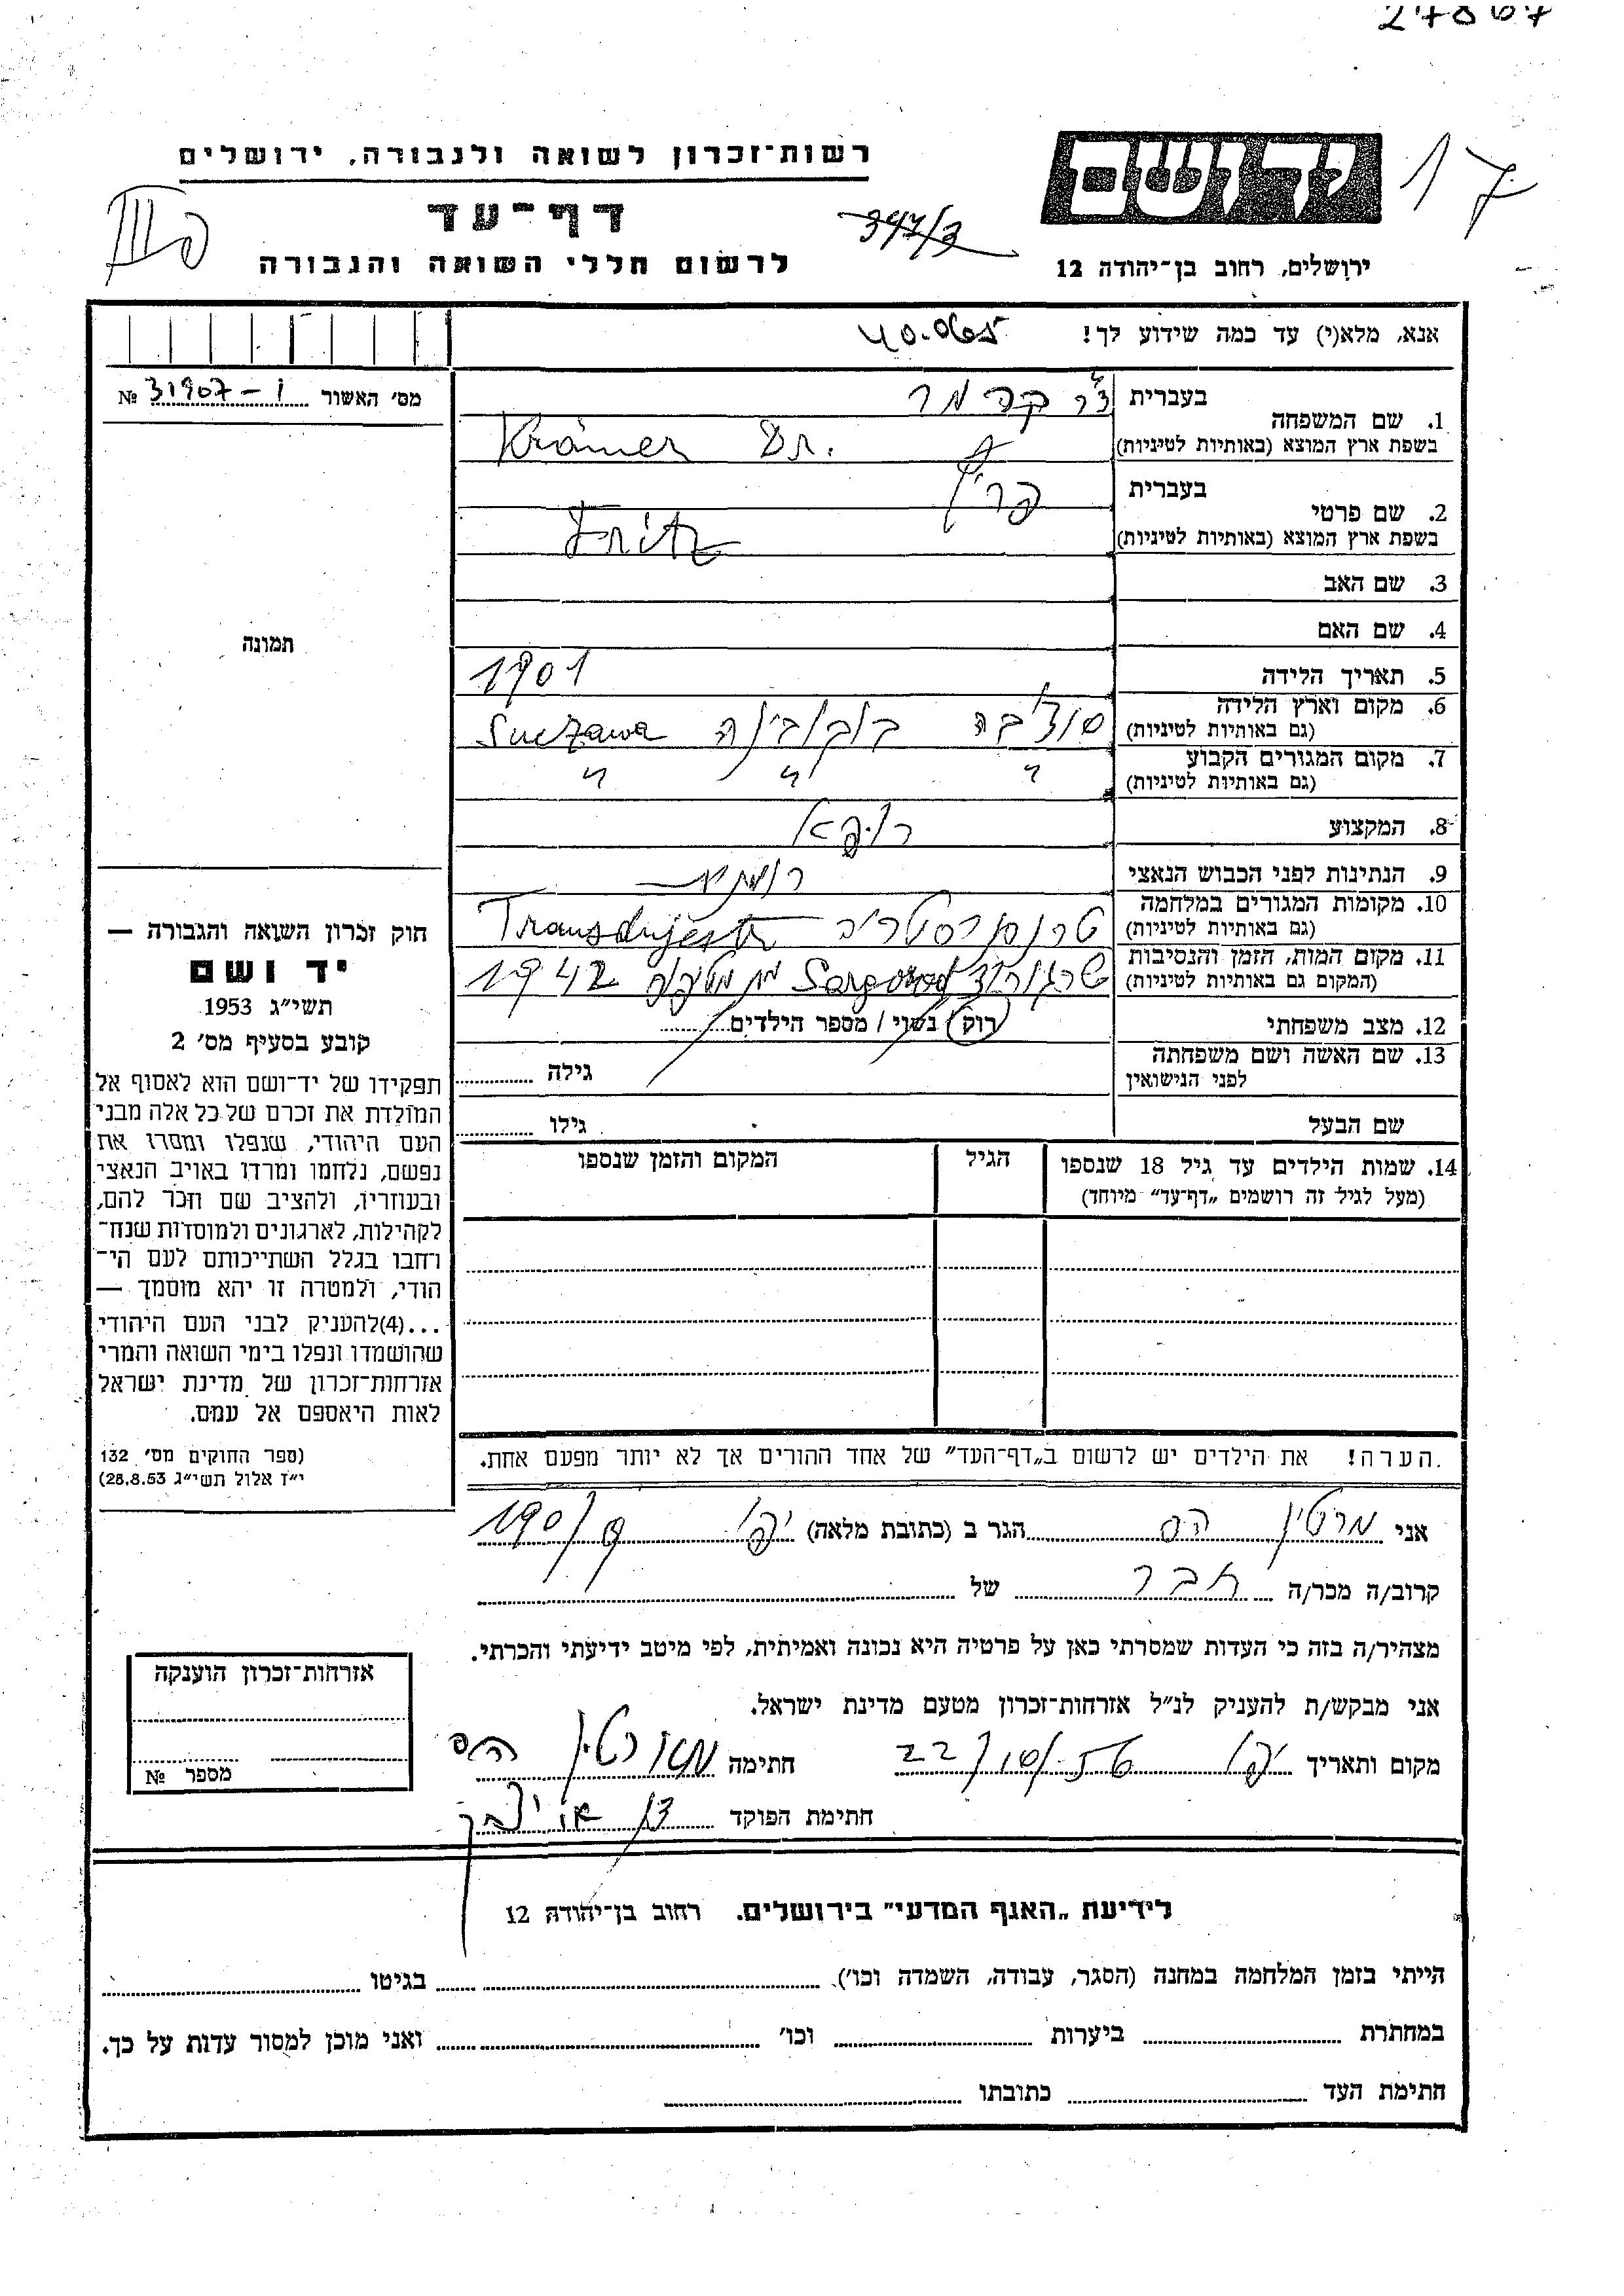 27867
רשות־זכרון לשואה ולגבורה, ירושלים
דף־עד
לרשום חללי השואה והגבורה
347/3
ידושם
17
ירושלים, רחוב בן־יהודה 12
אנא, מלא(י) עד כמה שידוע לך!
40.065
מס׳ האשור 31907-I №
1. שם המשפחה
בעברית ד"ר קרמר
בשפת ארץ המוצא (באותיות לטיניות) Krämer Dr.
2. שם פרטי
בעברית פריץ
בשפת ארץ המוצא (באותיות לטיניות) Fritz
3. שם האב
4. שם האם
תמונה
5. תאריך הלידה 1901
6. מקום וארץ הלידה
(גם באותיות לטיניות) סוצ'בה בוקובינה Suczawa
7. מקום המגורים הקבוע
(גם באותיות לטיניות) " " "
8. המקצוע רופא
9. הנתינות לפני הכבוש הנאצי
10. מקומות המגורים במלחמה
(גם באותיות לטיניות) Transdnjestr
11. מקום המות, הזמן והנסיבות
(המקום גם באותיות לטיניות) שרגורוד Sargorod מת מטיפוס 1942
12. מצב משפחתי רוק / נשוי / מספר הילדים
13. שם האשה ושם משפחתה
לפני הנישואין
גילה
שם הבעל
גילו
14. שמות הילדים עד גיל 18 שנספו
(מעל לגיל זה רושמים „דף־עד״ מיוחד)
הגיל
המקום והזמן שנספו
חוק זכרון השואה והגבורה —
יד ושם
תשי״ג 1953
קובע בסעיף מס׳ 2
תפקידו של יד־ושם הוא לאסוף אל
המולדת את זכרם של כל אלה מבני
העם היהודי, שנפלו ומסרו את
נפשם, נלחמו ומרדו באויב הנאצי
ובעוזריו, ולהציב שם וזכר להם,
לקהילות, לארגונים ולמוסדות שנח־
רחבו בגלל השתייכותם לעם הי־
הודי, ולמטרה זו יהא מוסמך —
...(4)להעניק לבני העם היהודי
שהושמדו ונפלו בימי השואה והמרי
אזרחות־זכרון של מדינת ישראל
לאות היאספם אל עמם.
(ספר החוקים מס׳ 132
י״ז אלול תשי״ג 28.8.53)
הערה! את הילדים יש לרשום ב„דף־העד״ של אחד ההורים אך לא יותר מפעם אחת.
אני מרטין הס הגר ב (כתובת מלאה) יפו 190/
קרוב/ה מכר/ה חבר של
מצהיר/ה בזה כי העדות שמסרתי כאן על פרטיה היא נכונה ואמיתית, לפי מיטב ידיעתי והכרתי.
אני מבקש/ת להעניק לנ״ל אזרחות־זכרון מטעם מדינת ישראל.
מקום ותאריך יפו 22/10/56 חתימה מארטין הס
חתימת הפוקד
אזרחות־זכרון הוענקה
מספר №
לידיעת „האגף המדעי״ בירושלים. רחוב בן־יהודה 12
הייתי בזמן המלחמה במחנה (הסגר, עבודה, השמדה וכו׳) בגיטו
במחתרת ביערות וכו׳ ואני מוכן למסור עדות על כך.
חתימת העד כתובתו